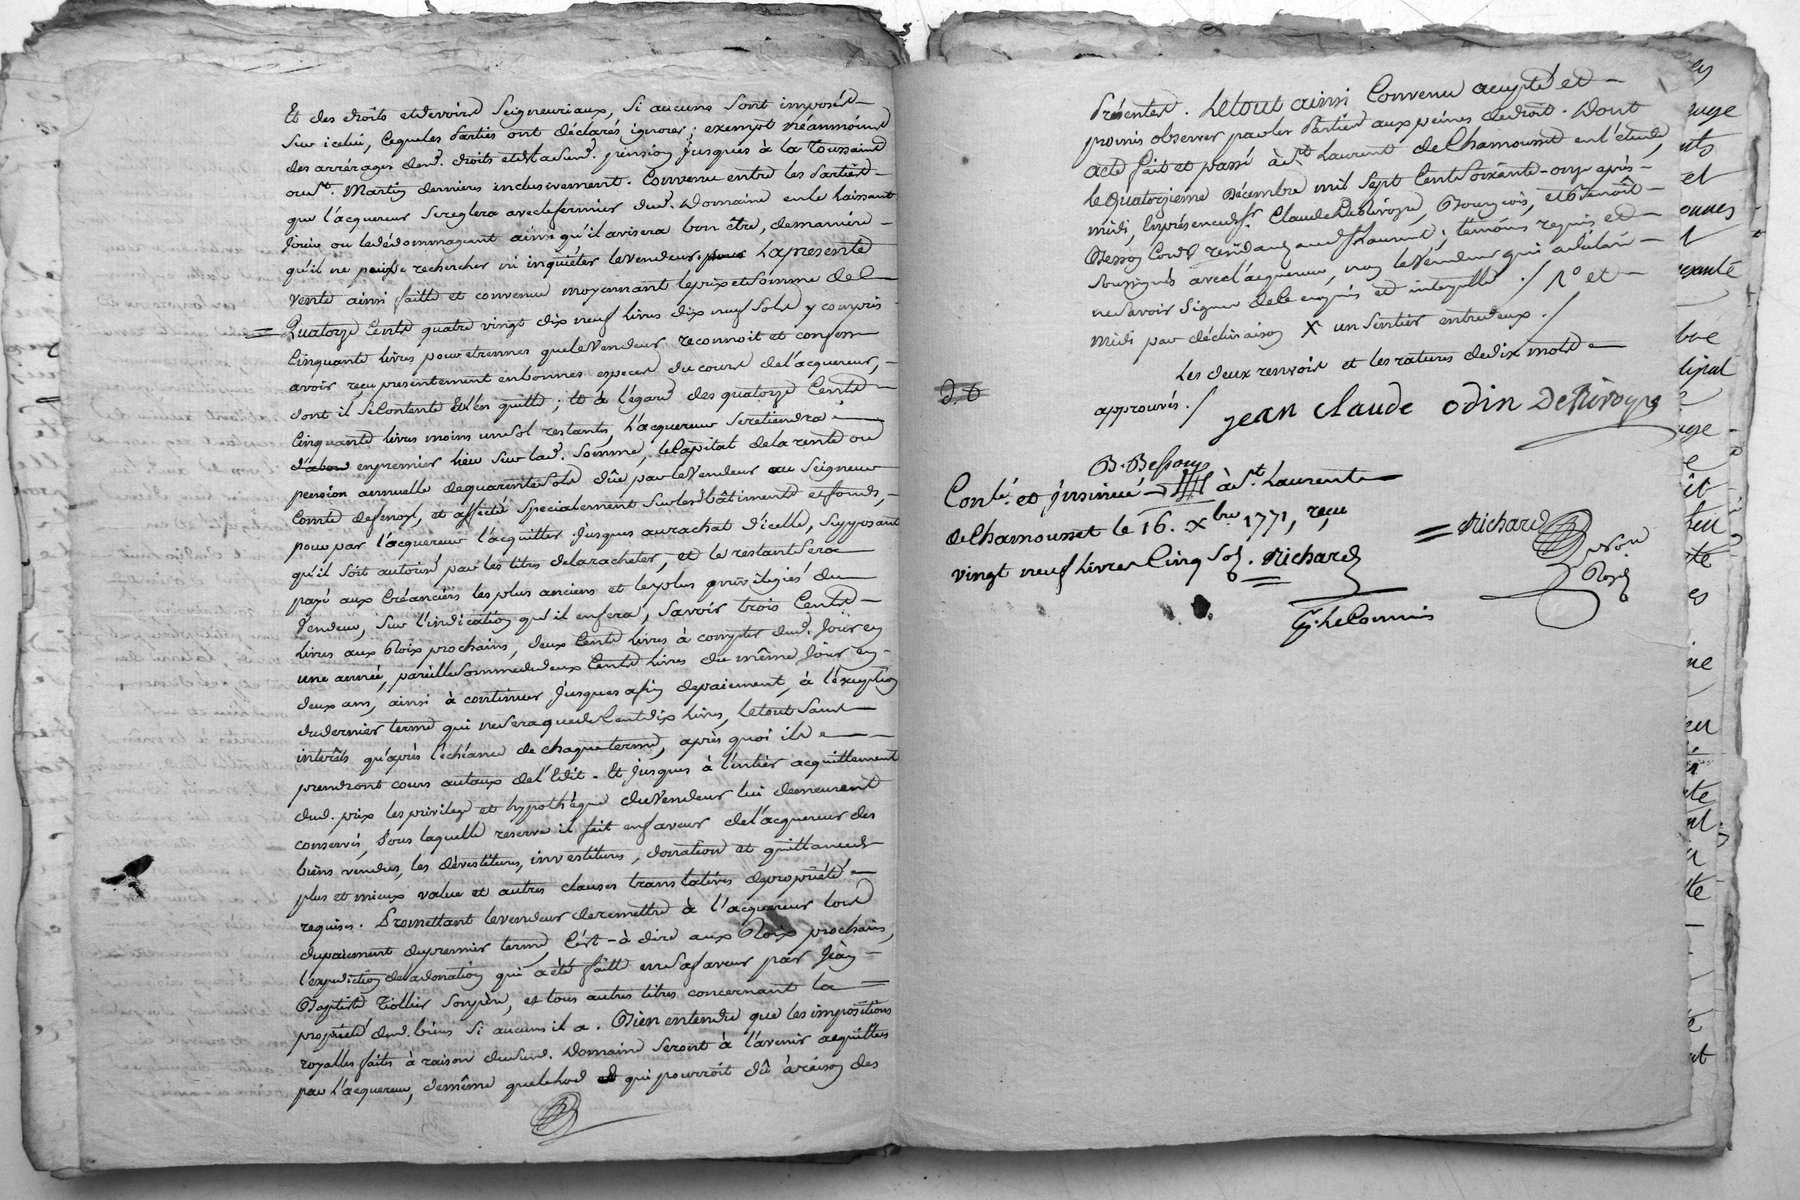 Et des droits et devoirs Seigneuriaux, si aucuns sont imposés
sur icelui, lequels Parties ont déclarés ignorer; exempt néanmoins
des arrérages desd. droits et de lad. pension jusques à la Toussaint
ou St. Martin dernieres inclusivement. Convenu entre les Parties
que l'acquereur se reglera avec le fermier dud. Domaine en le laissant
jouir ou le dédommageant ainsi qu'il avisera bon être, de maniere
qu'il ne puisse rechercher ni inquiéter le vendeur. La presente
vente ainsi faitte et convenue moyennant le prix et somme de
Quatorze Cents quatre vingt dix neuf livres dix neuf sols y compris
Cinquante livres pour etrennes que le Vendeur reconnoit et confesse
avoir reçu presentement en bonnes especes du cours de l'acquereur,
dont il se contente et l'en quitte; et à l'égard des quatorze Cents
Cinquante livres moins un sol restants, l'acquereur se retiendra
d'abord en premier lieu sur lad. somme, le Capital de la rente ou
pension annuelle de quarante sols dûe par le Vendeur au Seigneur
Comte de fenoyl, et affectée specialement sur les bâtiments et fonds,
pour par l'acquereur l'acquitter jusques au rachat d'icelle, supposant
qu'il soit autorisé par les titres de la racheter, et le restant sera
payé aux Créanciers les plus anciens et les plus privilegiés du
Vendeur, sur l'indication qu'il en fera, Savoir trois Cents
livres aux Roix prochains, deux Cents livres à compter dud. Jour en
une année, pareille somme de deux Cents livres du même Jour en
deux ans, ainsi à continuer jusques à fin de paiement, à l'exception
du dernier terme qui ne sera que de Cent dix livres, le tout sans
interêts qu'après l'échéance de chaque terme, après quoi ils
prendront cours au taux de l'Edit. Et jusques à l'entier acquittement
dud. prix les privilege et hypothèque du Vendeur lui demeurent
conservés, sous laquelle reserve il fait en faveur de l'acquereur des
biens vendus, les dévestitures, investitures, donation et quittances
plus et mieux value et autres clauses translatives de propriété
requises. Promettant le vendeur de remettre à l'acquereur lors
du paiement du premier terme, c'est-à-dire aux Roix prochains,
l'expedition de la donation qui a été faitte en sa faveur par Jean
Baptiste Tollier son père, et tous autres titres concernant la
proprieté dud. biens si aucuns il a. Bien entendu que les impositions
royalles faits à raison du sud. Domaine seront à l'avenir acquittées
par l'acquereur, de même que le lod qui pourroit dû à raison des
Présentes. Le tout ainsi Convenu accepté et
promis observer par les Parties aux peines de droit. Dont
acte fait et passé à St. Laurent de Chamousset en l'étude,
le quatorzieme Décembre mil sept Cents soixante-onze après-
midi, En présence de Sr. Claude Desfivoye, Bourgeois, et Benoît
Besson Cord. residants aud. St Laurent, temoins requis et
soussignés avec l'acquereur, non le Vendeur qui a déclaré
ne savoir signer de ce enquis et interpellé ./ 1° et
midi par déclinaison X un sentier entredeux ./
Les deux renvois et les ratures de dix mots
approuvés ./
jean claude odin
B. Besson
Conlé. et insinué à St. Laurent
de Chamousset le 16. Xbre 1771, reçu
vingt neuf livres Cinq sols. Richard
= Richard